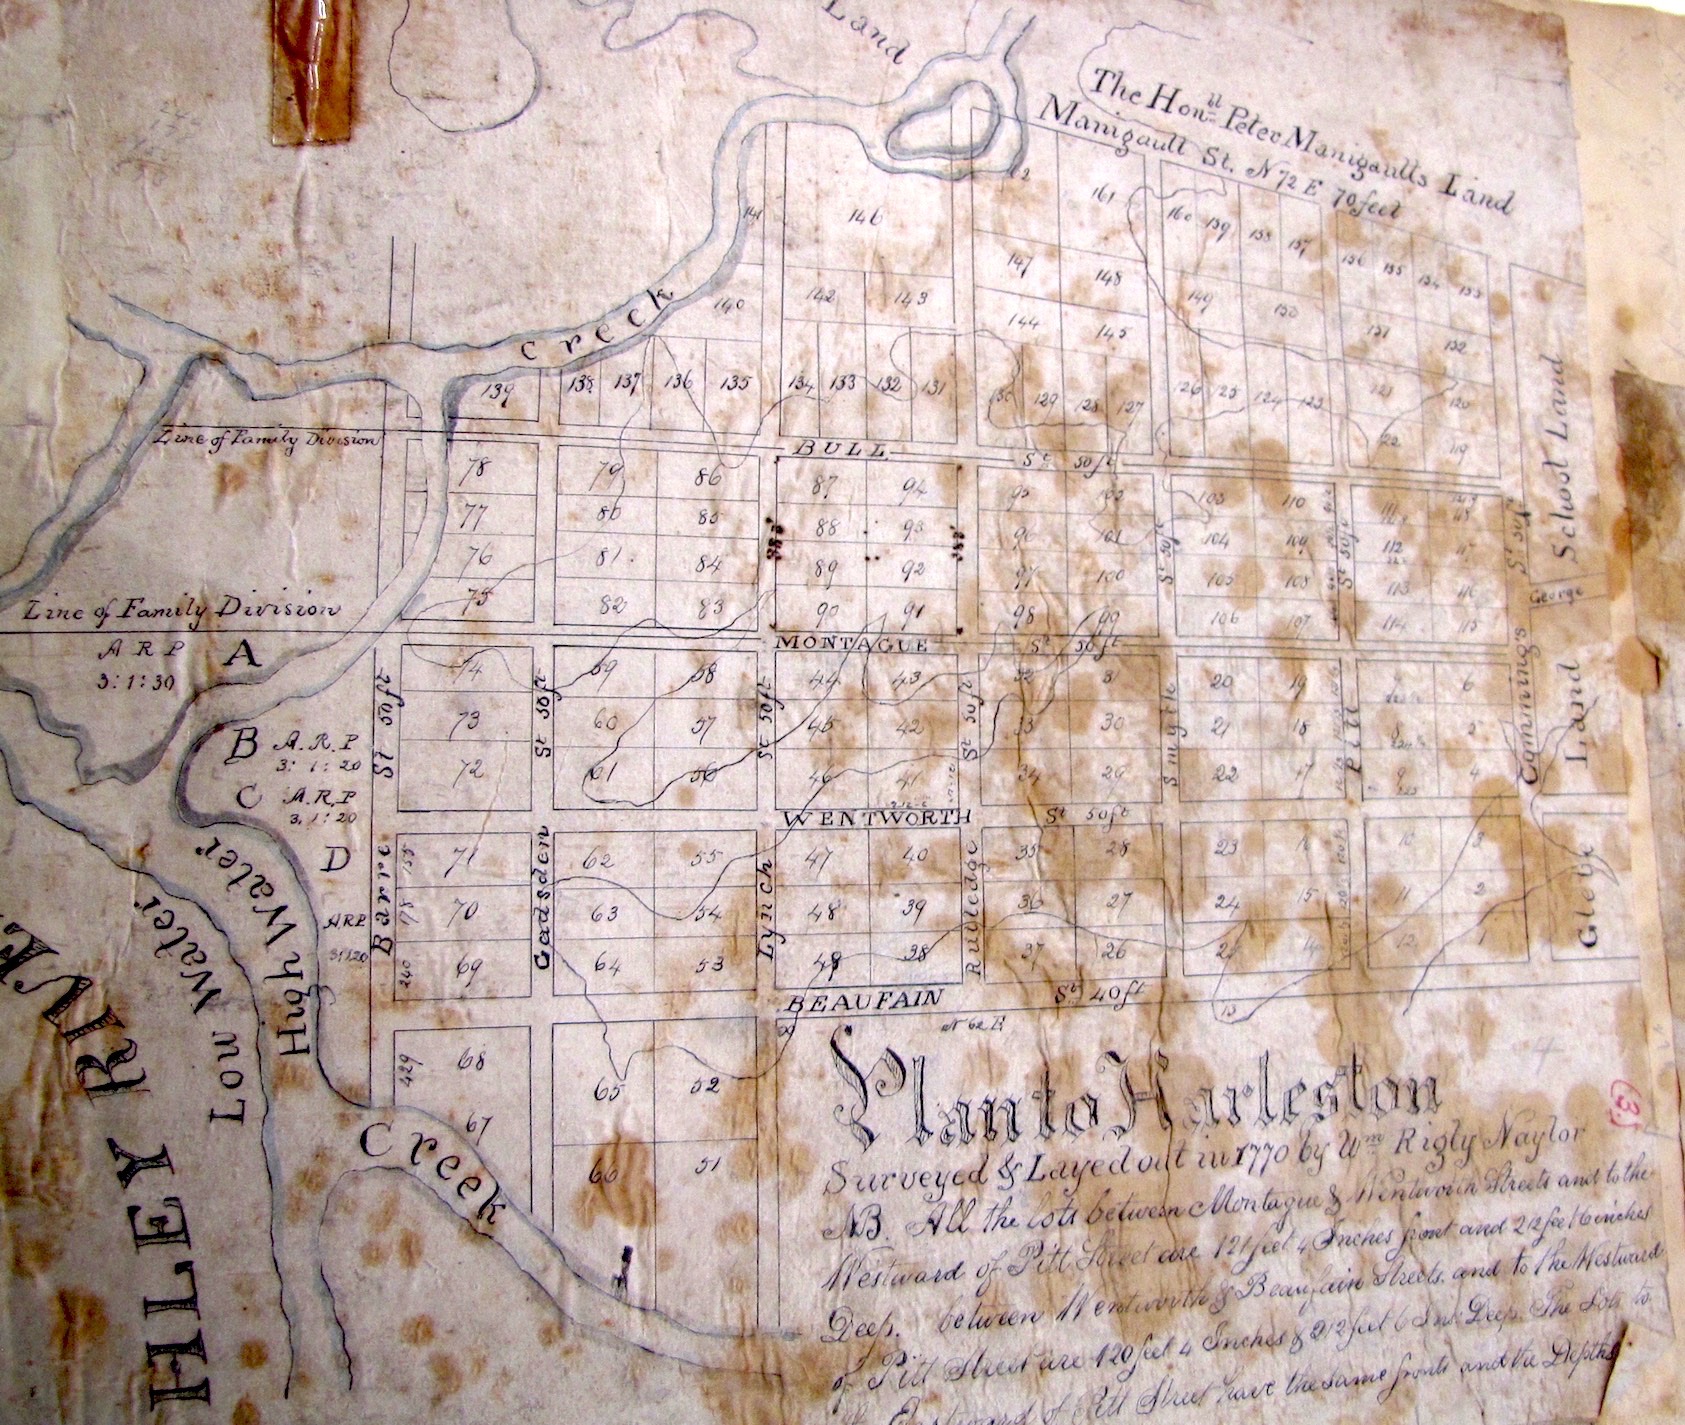 Land
The Honbl Peter Manigaults Land
Manigault St. N 72 E 70 feet
141 146 161 160 159 158 157
156 155 154 153
147 148 149 150 151 152
140 142 143 144 145
Creek
139 138 137 136 135 134 133 132 131 130 129 128 127 126 125 124 123
121 120
122 119
Line of Family Division
BULL St 50ft
78 79 86 87 94 95 102 103 110
77 80 85 88 93 96 101 104 109 112
76 81 84 89 92 97 100 105 108 113 116
75 82 83 90 91 98 99 106 107 114 115
St 50ft
St 50ft
St 50ft
School Land
George
Line of Family Division
A R P A
3:1:30
MONTAGUE St 50ft
74 59 58 44 43 32 31 20 19 6
73 60 57 45 42 33 30 21 18
72 61 56 46 41 34 29 22 17 4
B A.R.P
3:1:20
C A.R.P
3.1:20
St 50ft
St 50ft
St 50ft
St 50ft
Smythe
Pitt
Commings
Land
WENTWORTH St 50ft
D
ARP
3:1:20
Barre
155 71 62 55 47 40 35 28 23 16 10 3
178 70 63 54 48 39 36 27 24 15 11 2
240 69 64 53 49 38 37 26 25 14 12 1
Gadsden
Lynch
Rutledge
Glebe
BEAUFAIN St 40ft
N 62 E
13
High Water
Low Water
HLEY RIVE
429 68 65 52
67 66 51
Creek
Plan to Harleston
Surveyed & Layed out in 1770 by Wm Rigly Naylor
NB. All the lots between Montague & Wentworth Streets and to the
Westward of Pitt Street are 121 feet 4 Inches front and 212 feet 6 inches
Deep. between Wentworth & Beaufain Streets, and to the Westward
of Pitt Street are 120 feet 4 Inches & 212 feet 6 Ins Deep. The Lots to
Eastward of Pitt Street have the same fronts and the Depths